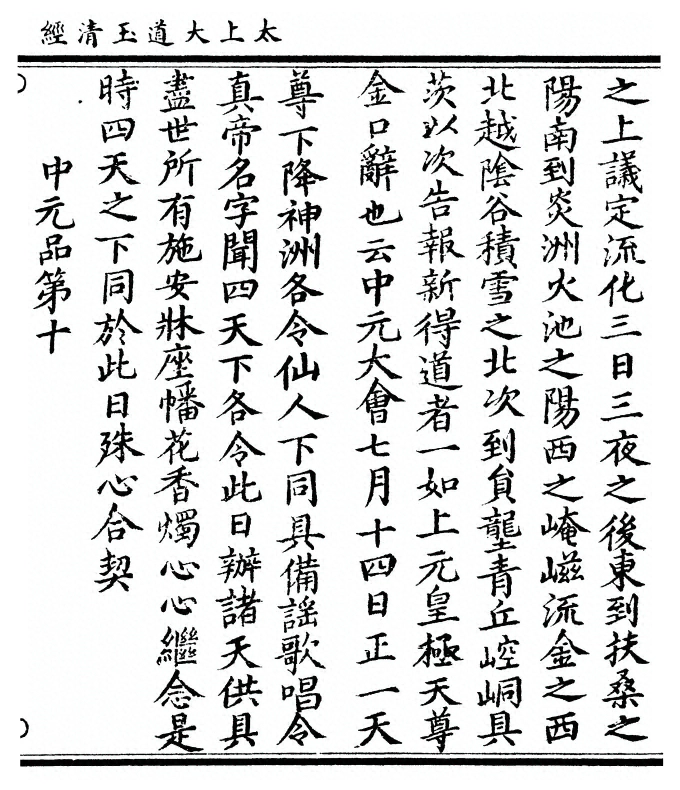 太上大道玉清經
之上議定流化三日三夜之後東到扶桑之
陽南到炎洲火池之陽西之崦嵫流金之西
北越陰谷積雪之北次到負壟青丘崆峒具
茨以次告報新得道者一如上元皇極天尊
金口辭也云中元大會七月十四日正一天
尊下降神洲各令仙人下同具備謡歌唱令
真帝名字聞四天下各令此日辦諸天供具
盡世所有施安牀座幡花香燭心心繼念是
時四天之下同於此日殊心合契
中元品第十